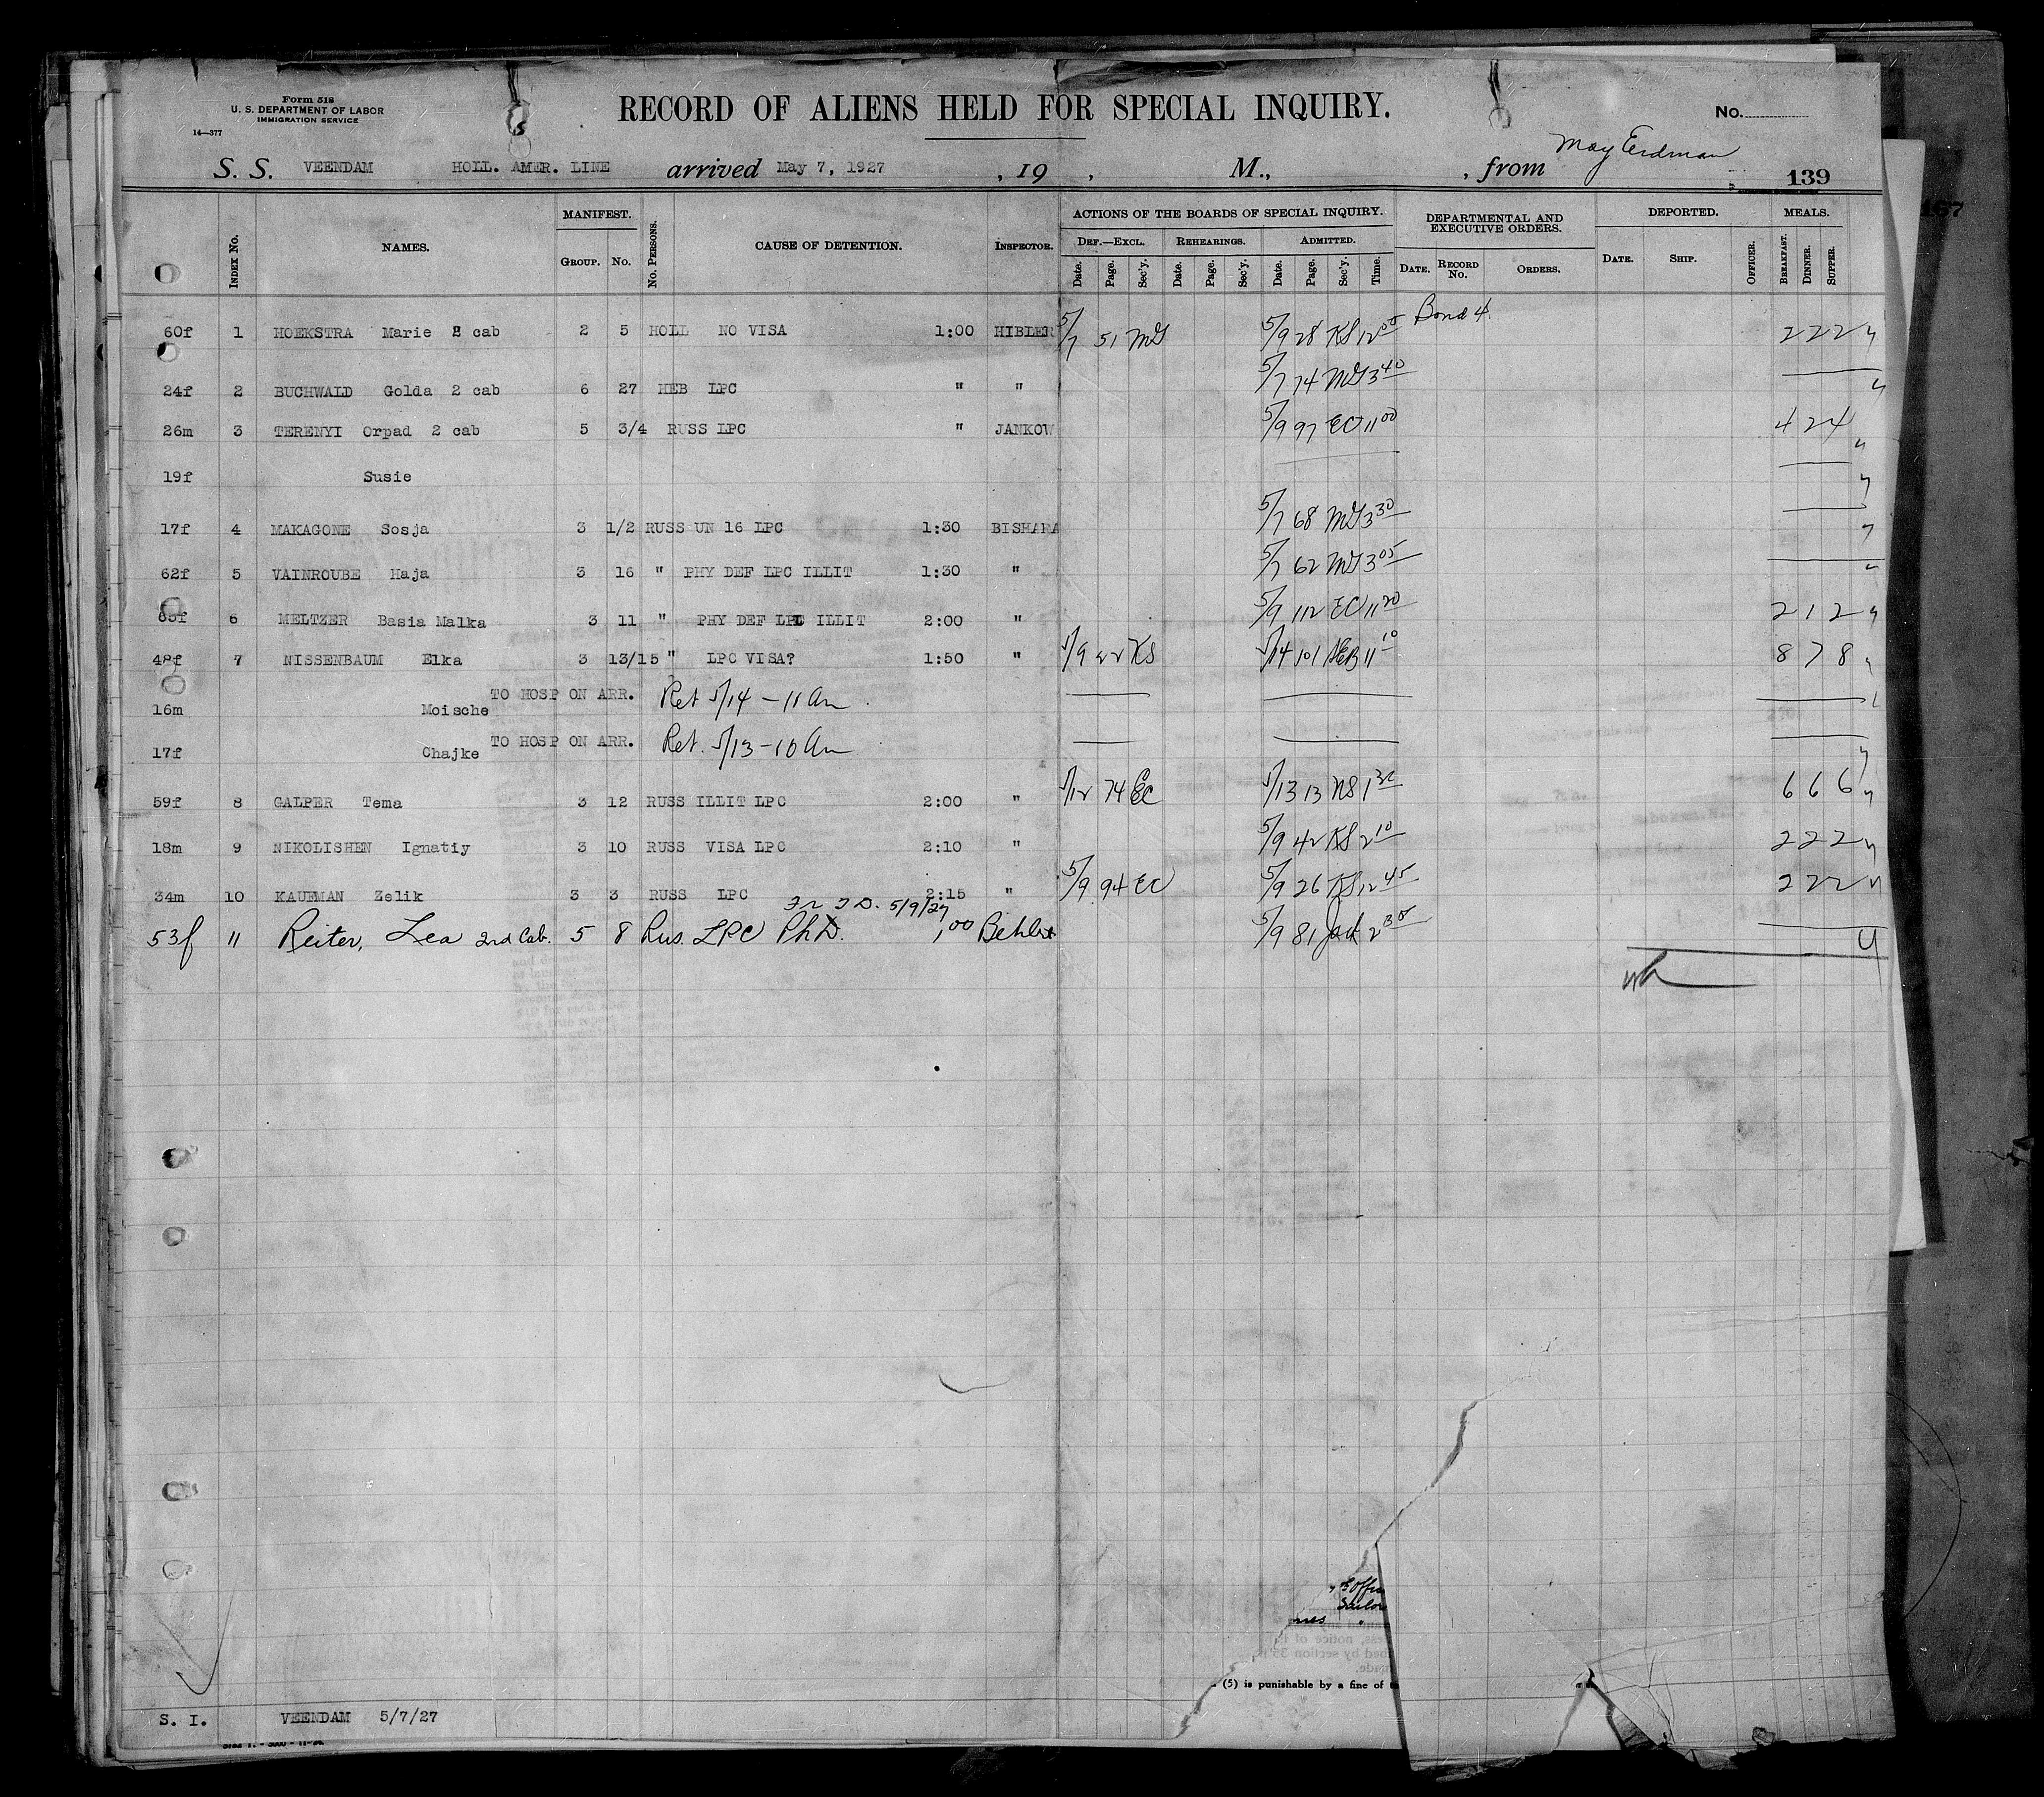 Form 518
U. S. DEPARTMENT OF LABOR
IMMIGRATION SERVICE
14—377
RECORD OF ALIENS HELD FOR SPECIAL INQUIRY.
No.
S. S. VEENDAM HOLL. AMER. LINE arrived May 7, 1927 , 19 , M., , from May Erdman
139
167
INDEX No. NAMES. MANIFEST. GROUP. No. No. PERSONS. CAUSE OF DETENTION. INSPECTOR.
ACTIONS OF THE BOARDS OF SPECIAL INQUIRY. DEPARTMENTAL AND EXECUTIVE ORDERS. DEPORTED. MEALS.
DEF.—EXCL. REHEARINGS. ADMITTED.
Date. Page. Sec'y. Date. Page. Sec'y. Date. Page. Sec'y. Time. DATE. RECORD No. ORDERS. DATE. SHIP. OFFICER. BREAKFAST. DINNER. SUPPER.
60f 1 HOEKSTRA Marie 2 cab 2 5 HOLL NO VISA 1:00 HIBLER 5/7 51 5/9 28 KS 12 00 Bond 4 2 2 2
24f 2 BUCHWALD Golda 2 cab 6 27 HEB LPC " " 5/7 74 3 40
26m 3 TERENYI Orpad 2 cab 5 3/4 RUSS LPC " JANKOW 5/9 97 EC 11 00 4 2 4
19f Susie
17f 4 MAKAGONE Sosja 3 1/2 RUSS UN 16 LPC 1:30 BISHARA 5/7 68 3 30
62f 5 VAINROUBE Haja 3 16 " PHY DEF LPC ILLIT 1:30 " 5/7 62 3 05
6 MELTZER Basia Malka 3 11 " PHY DEF LPC ILLIT 2:00 " 5/9 112 EC 11 20 2 1 2
48f 7 NISSENBAUM Elka 3 13/15 " LPC VISA? 1:50 " 5/9 22 KS 5/14 101 11 10 8 7 8
16m Moische TO HOSP ON ARR. Ret 5/14 - 11 Am
17f Chajke TO HOSP ON ARR. Ret. 5/13 - 10 Am
59f 8 GALPER Tema 3 12 RUSS ILLIT LPC 2:00 " 5/12 74 EC 5/13 13 1 30 6 6 6
18m 9 NIKOLISHEN Ignatiy 3 10 RUSS VISA LPC 2:10 " 5/9 42 KS 2 10 2 2 2
34m 10 KAUFMAN Zelik 3 3 RUSS LPC 2:15 " 5/9 94 EC 5/9 26 KS 12 45 2 2 2
Fr T.D. 5/9/27
53f 11 Reiter, Lea 2nd Cab. 5 8 Rus. LPC PhD. 1,00 5/9 81 2 30
Sailor
ess, notice of
bed by section 35
made.
(5) is punishable by a fine of
S. I. VEENDAM 5/7/27